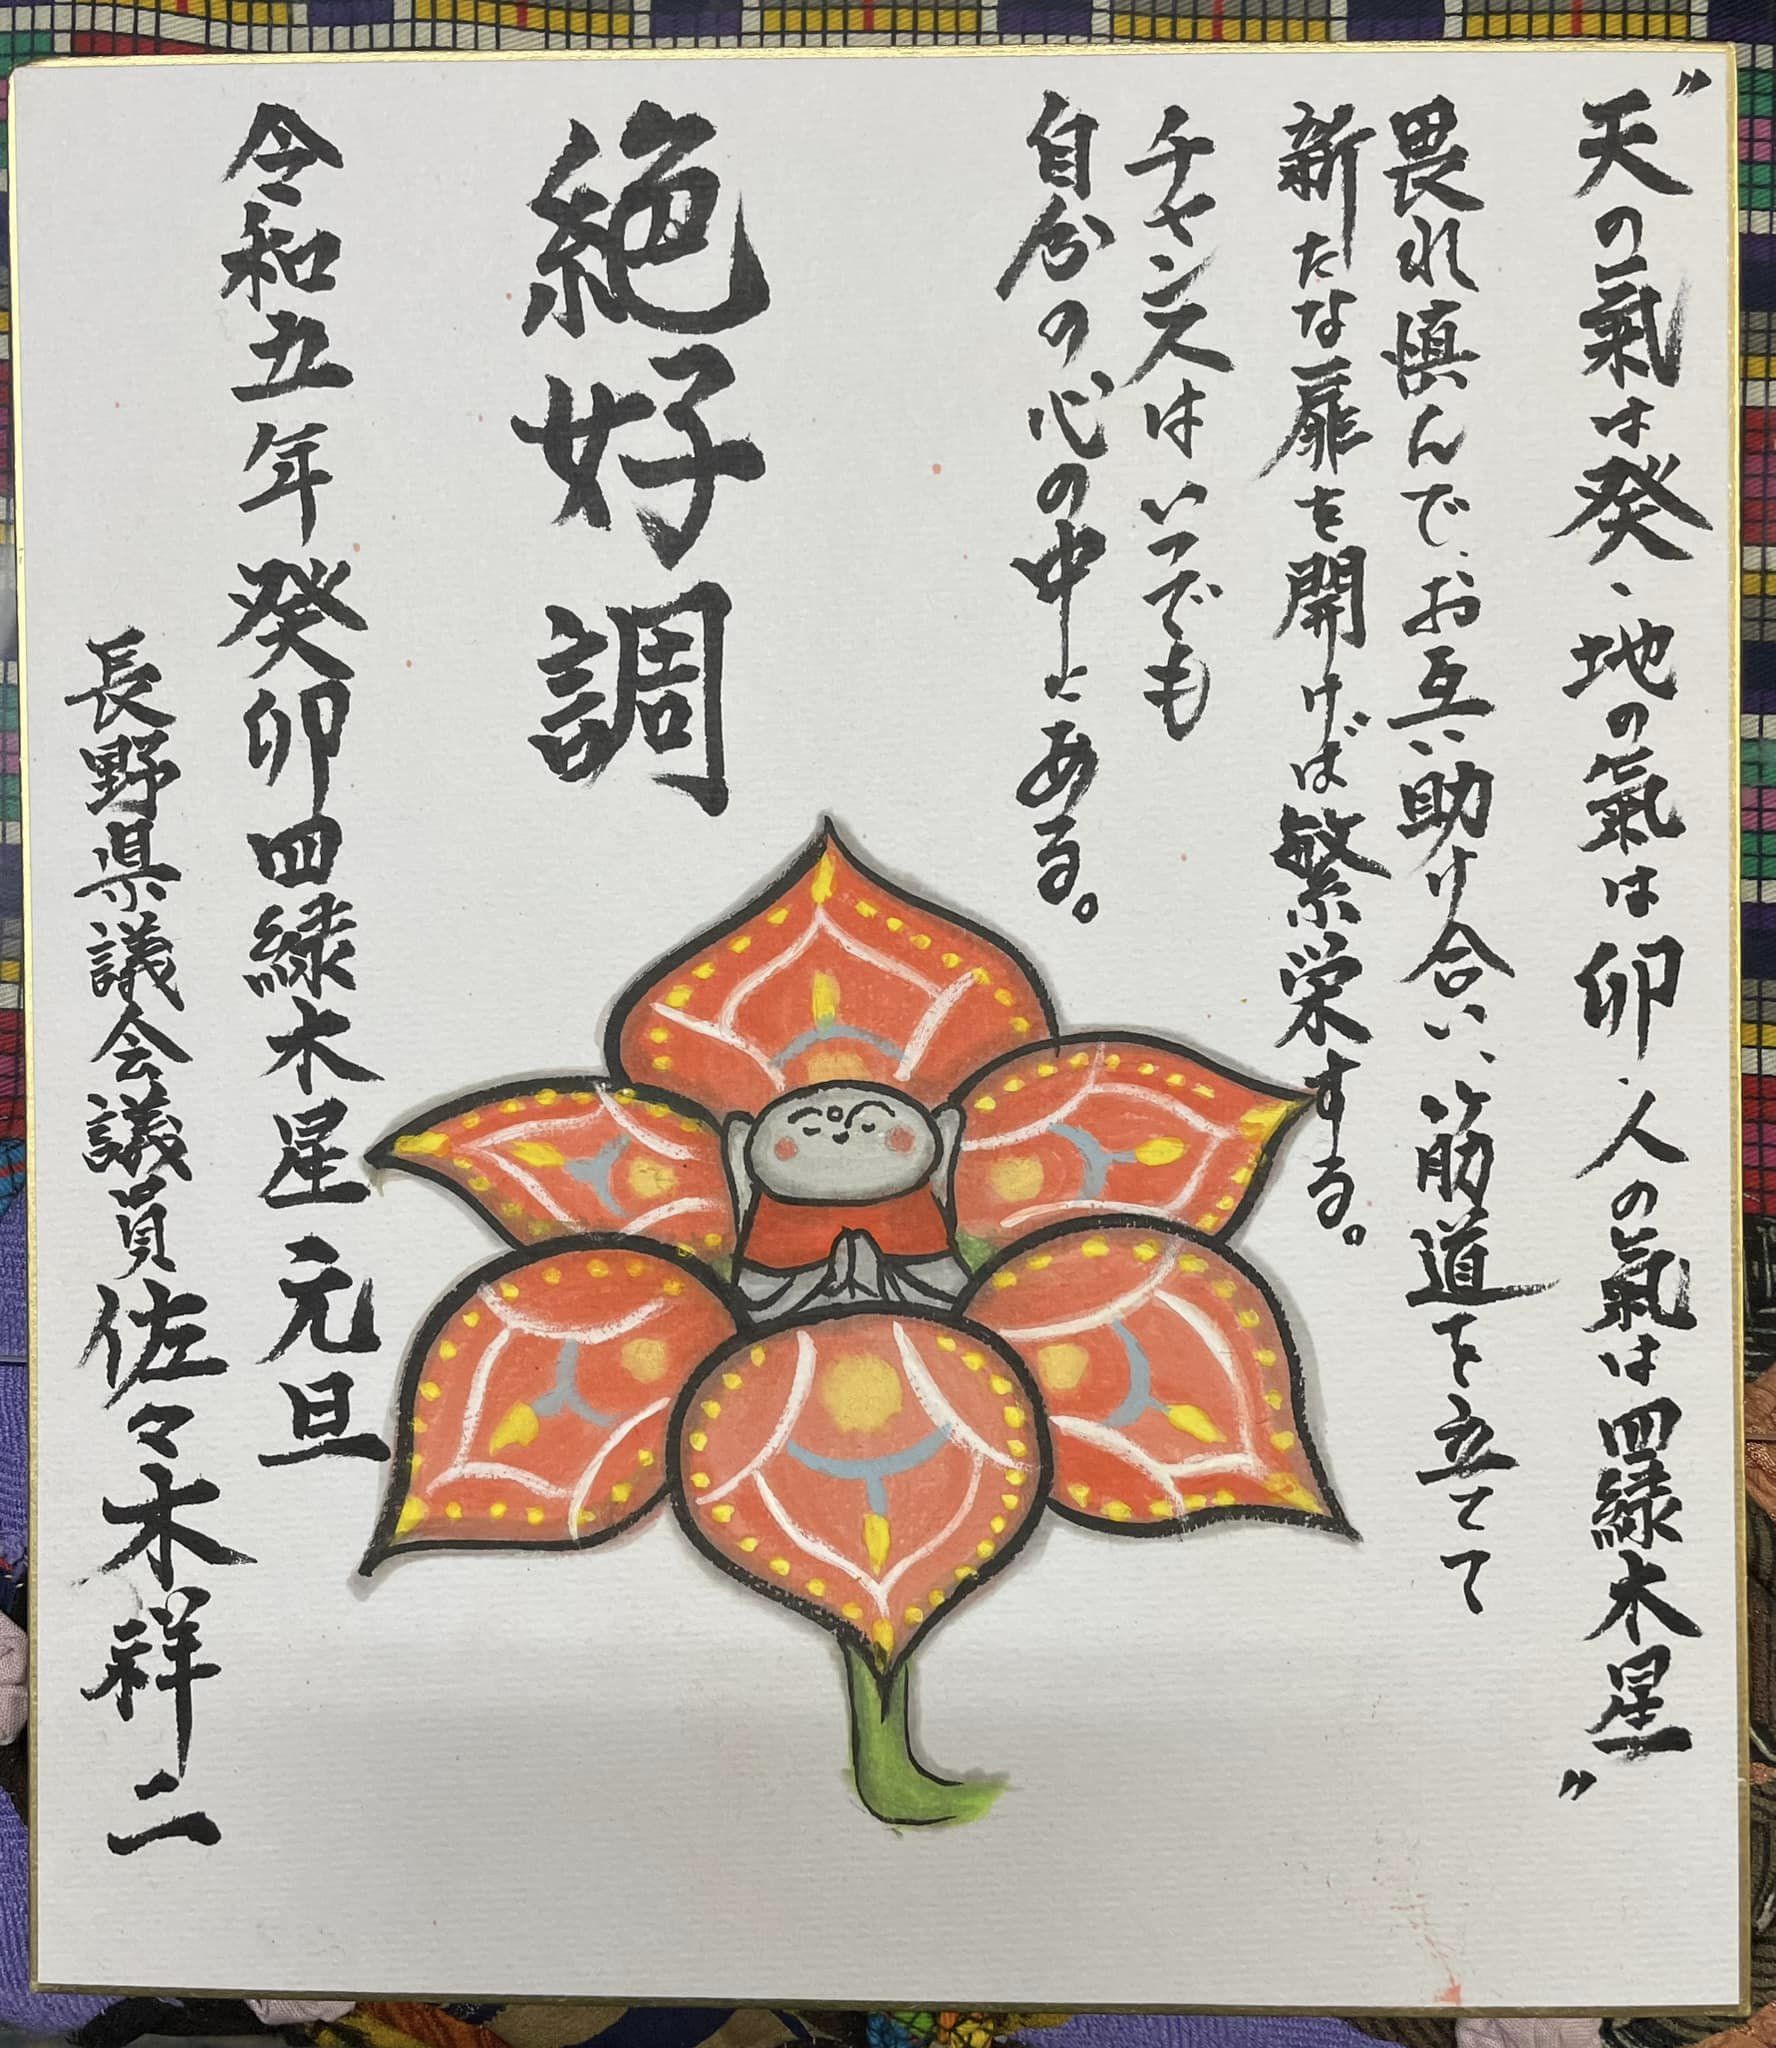 〝天の氣は癸、地の氣は卯、人の氣は四緑木星〟
畏れ慎んで、お互い助け合い、筋道を立てて
新たな扉を開けば繁栄する。
チャンスはいつでも
自分の心の中にある。
絶好調
令和五年癸卯四緑木星元旦
長野県議会議員佐々木祥二